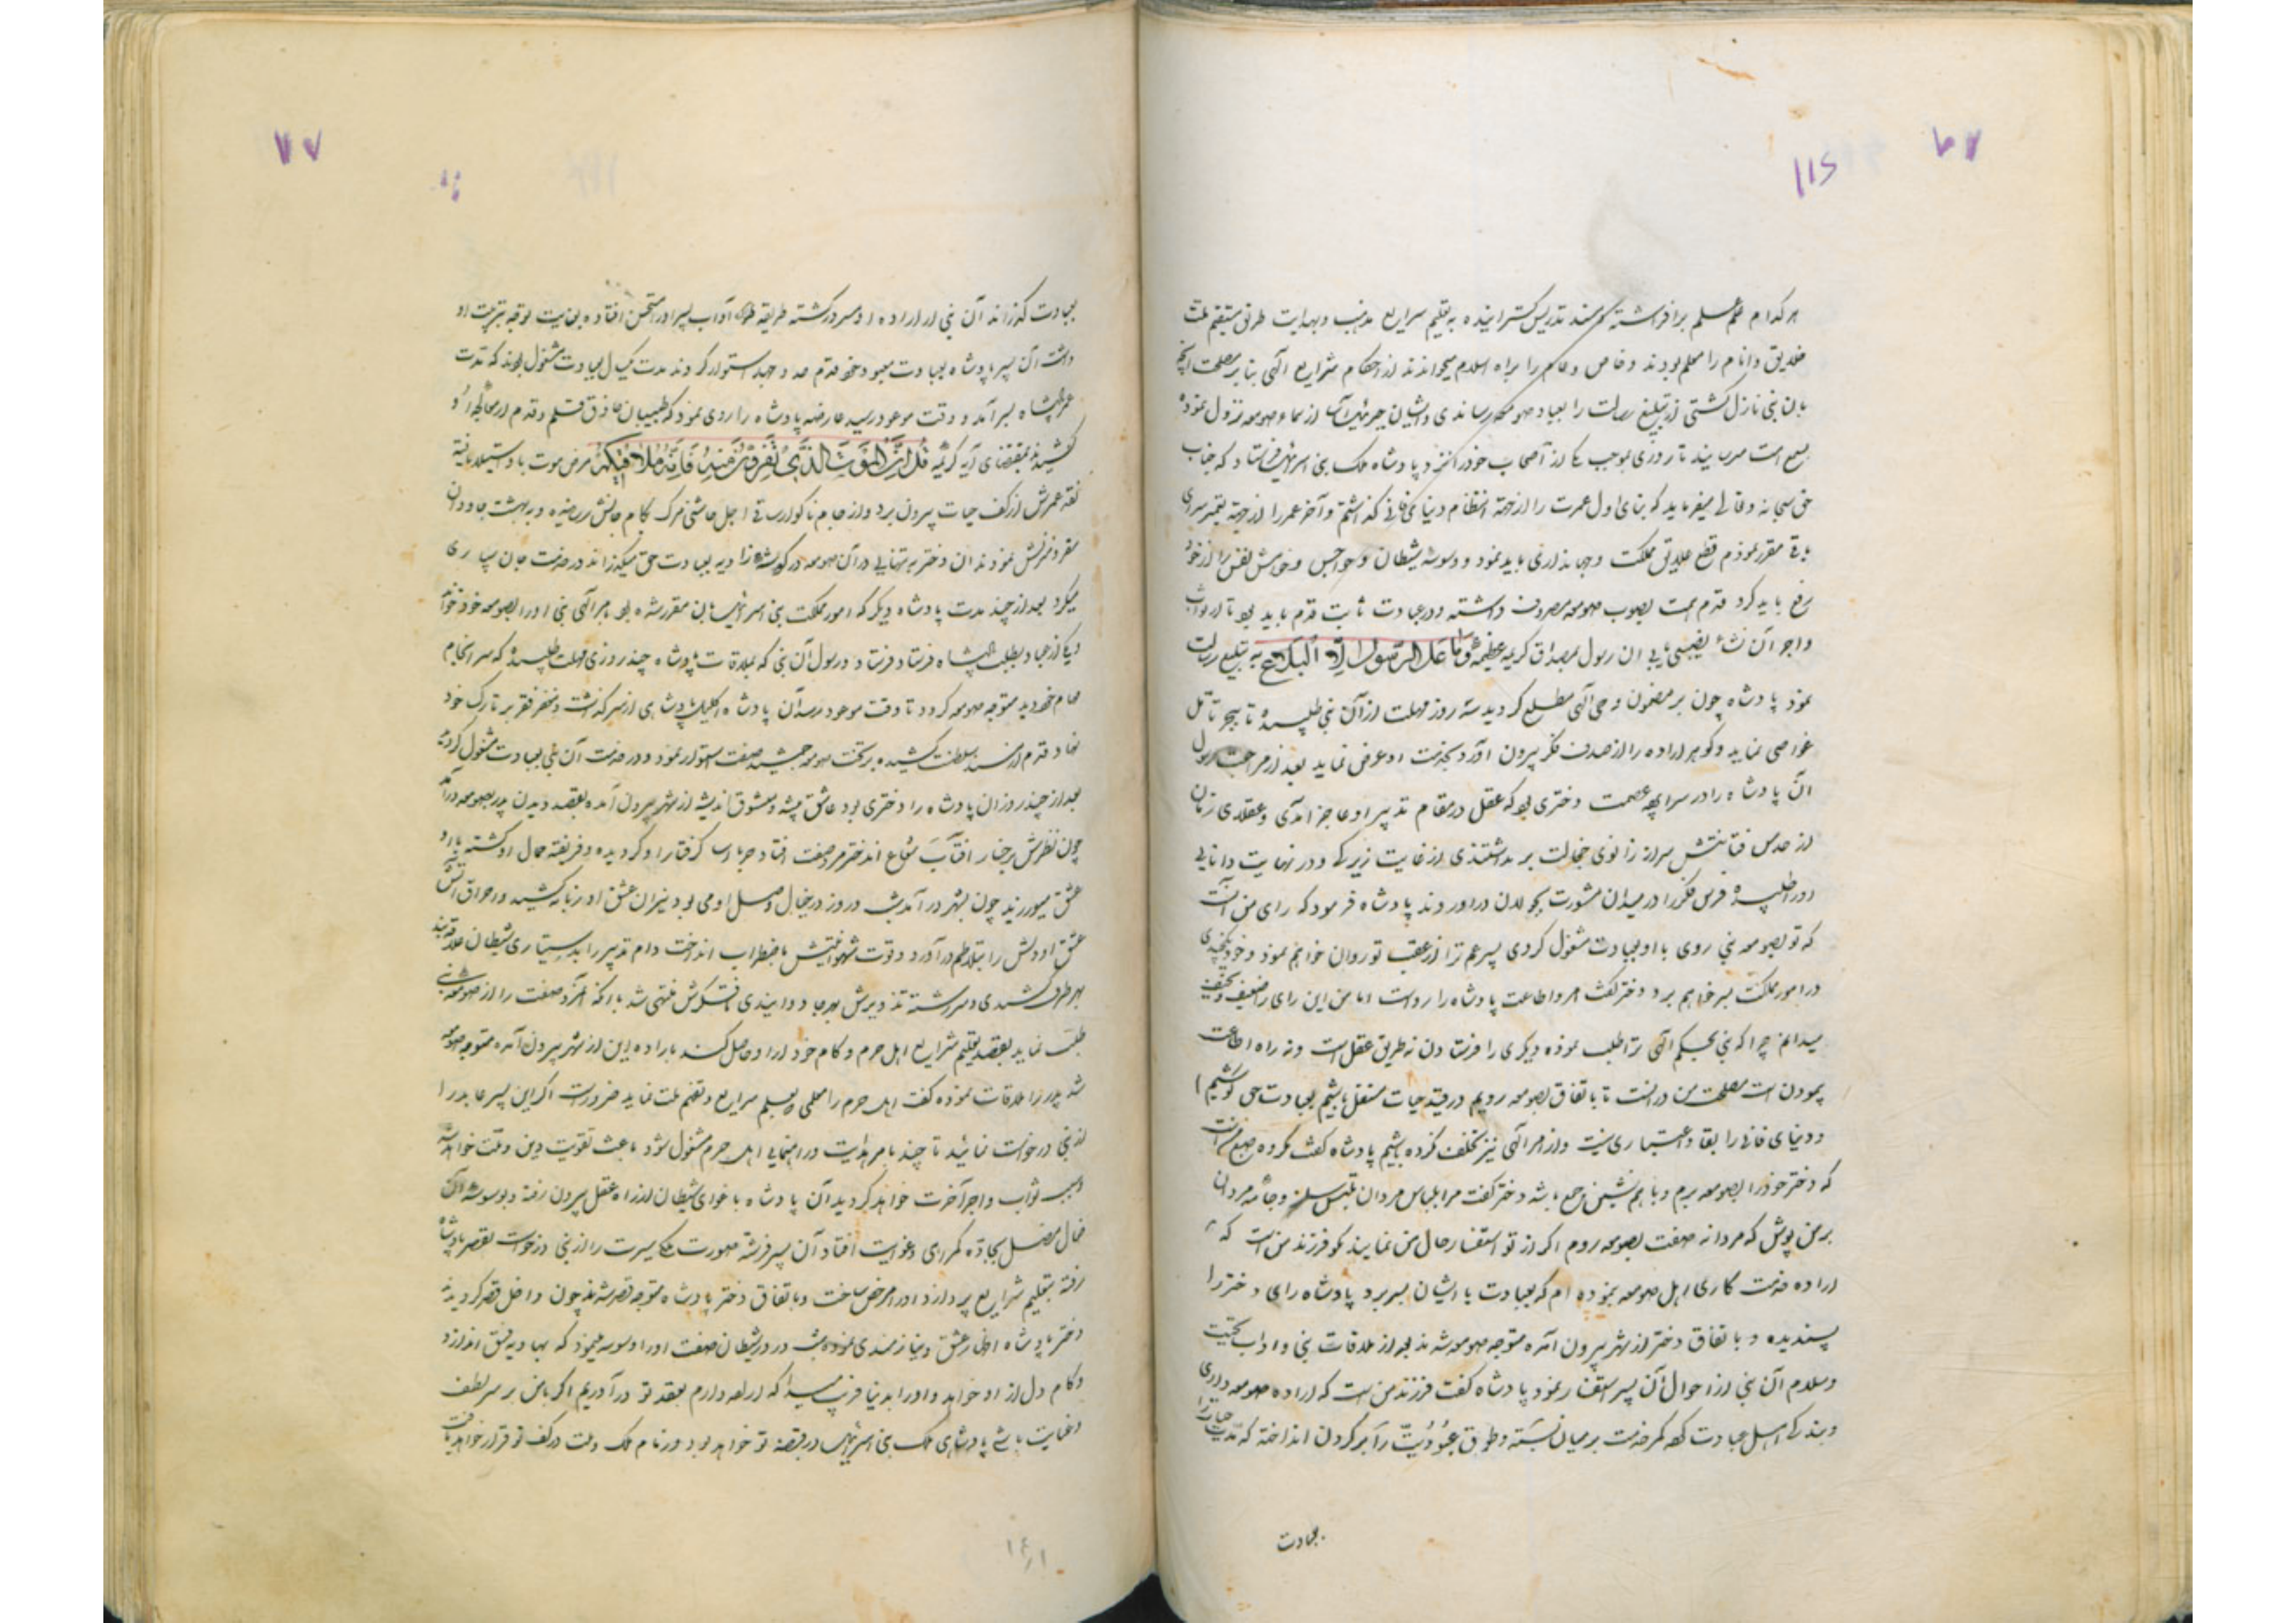 هر کدام علم علم برافراشته بر مسند تدریس گسترانیده به تعلیم شرایع مذهب و بهدایت طرق مستقیم ملت
خلایق و انام را معلم بودند و خاص و عام را براه اسلام میخواندند از احکام شرایع الهی بنا بر مصلحت آنچه
بان نبی نازل کشتی از تبلیغ رسالت را بعباد صومعه رساندی و ایشان از سماء صومعه نزول نموده
بسمع امت میرسانیدند تا روزی بموجب یکی از اصحاب خود را نزد پادشاه ملک بنی اسرائیل فرستاد که جناب
حق سبحانه و تعالی میفرماید که بنای اول عمرت را از جهة انتظام دنیای فانی گذاشتم و آخر عمر را از جهة تعمیر سرای
باقی مقرر نمودم قطع علایق مملکت و جهانداری باید نمود و وسوسه شیطان و هواجس و خواهش نفس را از خود
رفع باید کرد قدم همت بصوب صومعه مصروف داشته و در عبادت ثابت قدم باید بود تا از ثواب
و اجر آن نشاء بی نصیب نمانی آن رسول بمصداق کریمه عظیمه وَمَا عَلَی الرَّسُولِ اِلَّا الْبَلَاغ به تبلیغ رسالت
نمود پادشاه چون بر مضمون وحی الهی مطلع کردید سه روز مهلت از آن نبی طلبیده تا ببحر تأمل
غواصی نماید و کوهر اراده را از صدف فکر بیرون آورد بخدمت او عرض نماید بعد از مراجعت رسول
آن پادشاه را در سراپرده عصمت دختری بود که عقل در مقام تدبیر او عاجز آمدی و عقلای زمان
از حدس سر از زانوی خجالت برنداشتندی از غایت زیرکی و در نهایت دانایی
او را طلبیده فرس فکر را در میدان مشورت بجولان درآوردند پادشاه فرمود که رای من آنست
که تو بصومعه نبی روی با او بعبادت مشغول کردی پسر عم ترا از عقب تو روان خواهم نمود و خود
در امور مملکت بسر خواهم برد دختر گفت امر و اطاعت پادشاه را رواست اما من این رای را ضعیف و نحیف
میدانم چرا که نبی بحکم الهی ترا طلب نموده دیگری را فرستادن نه طریق عقل است و نه راه اطاعت
پیمودن است مصلحت من در آنست تا باتفاق بصومعه رویم در قید حیات مشغل باشیم بعبادت حی کوشیم
و دنیای فانی را بقا و اعتباری نیست و از امر الهی نیز تخلف نکرده باشیم پادشاه گفت
که دختر خود را بصومعه برم و با هم نشین جمع باشد دختر گفت مرا بلباس مردان ملبس ساز و جامه مردان
بر من پوش که مردانه صفت بصومعه روم اگر از تو استفسار حال من نمایند بگو فرزند من است که
اراده خدمت کاری اهل صومعه نموده ام که بعبادت با ایشان بسر برد پادشاه رای دختر را
پسندیده و باتفاق دختر از شهر بیرون آمده متوجه صومعه شدند بعد از ملاقات نبی و آداب تحیت
و سلام آن نبی از احوال آن پسر استفسار نمود پادشاه گفت فرزند من است که اراده صومعه داری
و بندگی اهل عبادت کرده کمر خدمت بر میان بسته و طوق عبودیت را بر گردن انداخته که مدت حیات را
بعبادت
بعبادت گذراند آن نبی از اراده او مسرور گشته طریقه آداب پسر او را مستحسن افتاده بغایت توجه بتربیت او
داشت آن پسر با پادشاه بعبادت معبود خود قدم جد و جهد استوار کردند مدت یک سال بعبادت مشغول بودند که مدت
عمر پادشاه بسر آمد و وقت موعود رسید عارضه پادشاه را روی نمود که طبیبان حاذق قلم و قدم از معالجه او
کشیدند بمقتضای آیه کریمه قُلْ اِنَّ الْمَوْتَ الَّذِی تَفِرُّونَ مِنْهُ فَاِنَّهُ مُلَاقِیکُمْ مرض موت باو استیلا یافته
نقد عمرش از کف حیات بیرون برد و از جام ناگوار ساقی اجل چاشنی مرگ بکام جانش رسیده و در بهشت جاودان
مقر و منزلش نمودند آن دختر به تنهایی در آن صومعه در گوشه زاویه بعبادت حق میگذراند و در خدمت جان سپاری
میکرد بعد از چند مدت پادشاه دیگر که امور مملکت بنی اسرائیل بآن مقرر شده بود بامر الهی نبی او را بصومعه خود خواند
و یکی از عباد بطلب پادشاه فرستاد و رسول آن نبی که بملاقات پادشاه چند روزی مهلت طلبیده که سرانجام
مهام خود دیده متوجه صومعه گردد تا وقت موعود رسد آن پادشاه اکلیل پادشاهی از سر گذاشت و مغفر فقر بر تارک خود
نهاد قدم از مسند سلطنت کشیده بر تخت صومعه جمشید صفت استوار نمود و در خدمت آن نبی بعبادت مشغول گردید
بعد از چند روز آن پادشاه را دختری بود عاشق پیشه و معشوق اندیشه از شهر بیرون آمده بقصد دیدن پدر بصومعه درآمد
چون نظرش بر رخسار آفتاب شعاع آن دختر مرد صفت افتاد گرفتار او گردیده و فریفته جمال او گشته با او
عشق میورزید چون بشهر درآمد شب و روز در خیال وصل او می بود نیران عشق او زبانه کشید و احراق آتش
عشق او دلش را بتلاطم درآورد و قوت شهوانیتش باضطراب انداخت دام تدبیر را بدستیاری شیطان
بهر طرف کشیدی و سررشته تزویرش بهر جا دوانیدی فکرش منتهی شد بآنکه آن مرد صفت را از صومعه نبی
طلب نماید بقصد تعلیم شرایع اهل حرم و کام خود از او حاصل کند باراده این از شهر بیرون آمده متوجه صومعه
شد پدر را ملاقات نموده گفت اهل حرم را معلمی که تعلیم شرایع و تفهیم ملت نماید ضرور است اگر این پسر عابد را
از نبی درخواست نمائید تا چند بامر هدایت و راهنمایی اهل حرم مشغول شود باعث تقویت دین و ملت خواهد شد
و سبب ثواب و اجر آخرت خواهد گردید آن پادشاه باغوای شیطان از راه عقل بیرون رفته و بوسوسه آن
ضال مضل بجاده گمراهی و غوایت افتاد آن پسر فرشته صورت ملک سیرت را از نبی درخواست بقصر پادشاه
رفته بتعلیم شرایع پردازد او را مرخص ساخت و باتفاق دختر پادشاه متوجه قصر شدند چون داخل قصر گردیدند
دختر پادشاه اظهار عشق و نیازمندی نموده شیطان صفت او را وسوسه مینمود که بهاویه فسق اندازد
و کام دل از او خواهد و او را بدنیا فریب میداد که اراده دارم بعقد تو درآوریم اگر با من بر سر لطف
و عنایت باشی پادشاهی ملک بنی اسرائیل در قبضه تو خواهد بود و زمام ملک و ملت در کف تو قرار خواهد یافت